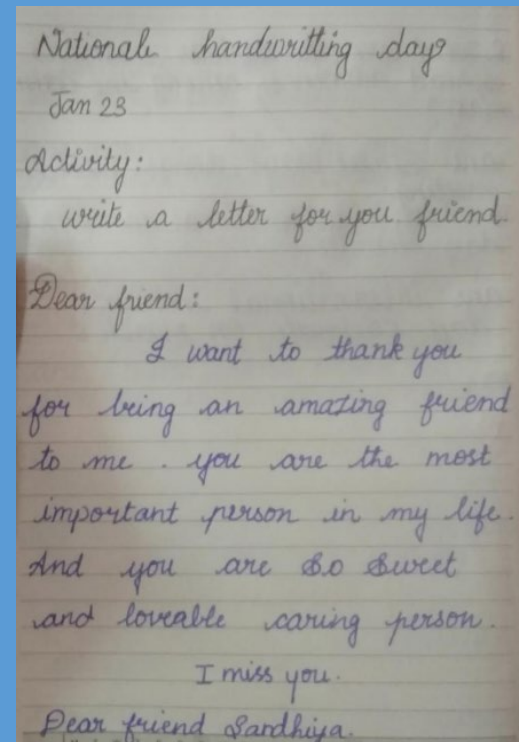 National handwritting day
Jan 23
Activity:
write a letter for you friend.
Dear friend:
I want to thank you
for being an amazing friend
to me. you are the most
important person in my life.
And you are so sweet
and loveable caring person.
I miss you.
Dear friend Sandhiya.